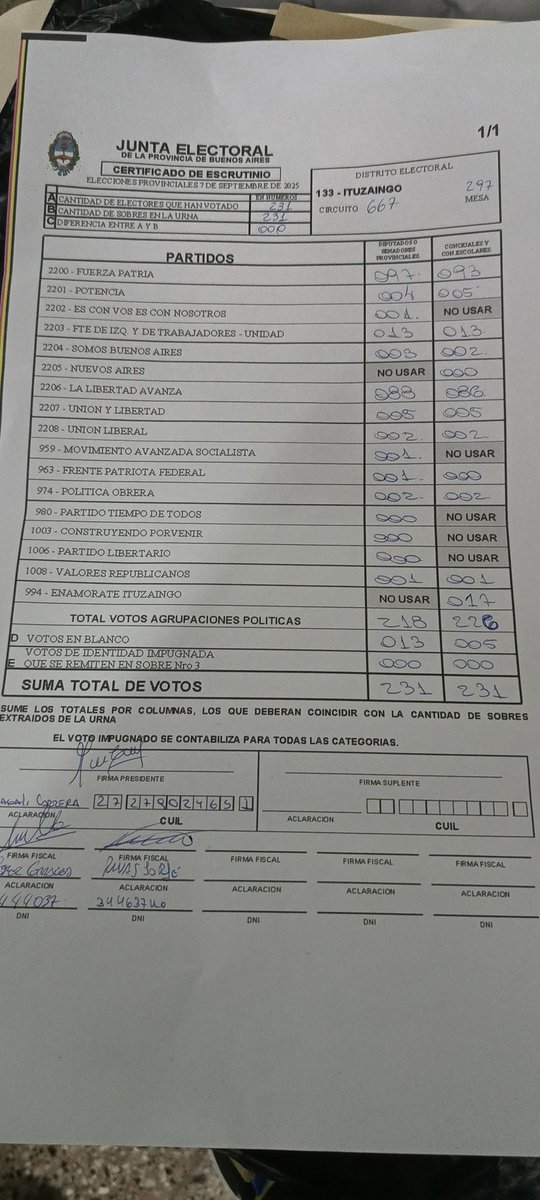 1/1
JUNTA ELECTORAL
DE LA PROVINCIA DE BUENOS AIRES
CERTIFICADO DE ESCRUTINIO
ELECCIONES PROVINCIALES 7 DE SEPTIEMBRE DE 2025
EN NUMEROS
A CANTIDAD DE ELECTORES QUE HAN VOTADO 231
B CANTIDAD DE SOBRES EN LA URNA 231
C DIFERENCIA ENTRE A Y B 000
DISTRITO ELECTORAL
133 - ITUZAINGO 297
CIRCUITO 667 MESA
PARTIDOS DIPUTADOS O SENADORES PROVINCIALES. CONCEJALES Y CON ESCOLARES.
2200 - FUERZA PATRIA 097 093
2201 - POTENCIA 004 005
2202 - ES CON VOS ES CON NOSOTROS 001 NO USAR
2203 - FTE DE IZQ. Y DE TRABAJADORES - UNIDAD 013 013
2204 - SOMOS BUENOS AIRES 003 002
2205 - NUEVOS AIRES NO USAR 000
2206 - LA LIBERTAD AVANZA 088 086
2207 - UNION Y LIBERTAD 005 005
2208 - UNION LIBERAL 002 002
959 - MOVIMIENTO AVANZADA SOCIALISTA 001 NO USAR
963 - FRENTE PATRIOTA FEDERAL 001 000
974 - POLITICA OBRERA 002 002
980 - PARTIDO TIEMPO DE TODOS 000 NO USAR
1003 - CONSTRUYENDO PORVENIR 000 NO USAR
1006 - PARTIDO LIBERTARIO 000 NO USAR
1008 - VALORES REPUBLICANOS 001 001
994 - ENAMORATE ITUZAINGO NO USAR 017
TOTAL VOTOS AGRUPACIONES POLITICAS 218 226
D VOTOS EN BLANCO 013 005
VOTOS DE IDENTIDAD IMPUGNADA
E QUE SE REMITEN EN SOBRE Nro 3 000 000
SUMA TOTAL DE VOTOS 231 231
SUME LOS TOTALES POR COLUMNAS, LOS QUE DEBERAN COINCIDIR CON LA CANTIDAD DE SOBRES
EXTRAIDOS DE LA URNA
EL VOTO IMPUGNADO SE CONTABILIZA PARA TODAS LAS CATEGORIAS.
FIRMA PRESIDENTE FIRMA SUPLENTE
ACLARACIÓN CUIL ACLARACIÓN CUIL
FIRMA FISCAL FIRMA FISCAL FIRMA FISCAL FIRMA FISCAL FIRMA FISCAL
ACLARACION ACLARACION ACLARACION ACLARACION ACLARACION
DNI DNI DNI DNI DNI